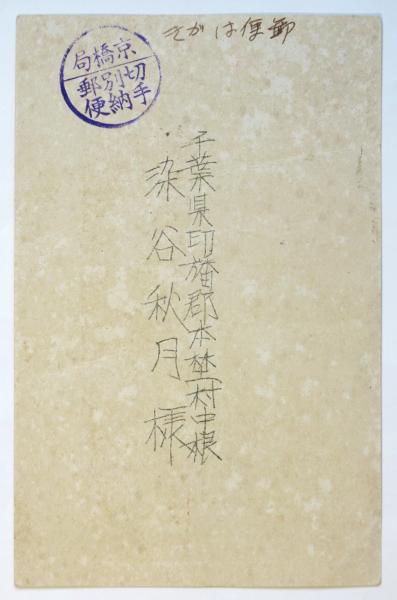 郵便はがき
京橋局
切手別納郵便
千葉県印旛郡本埜村中根
染谷秋月様